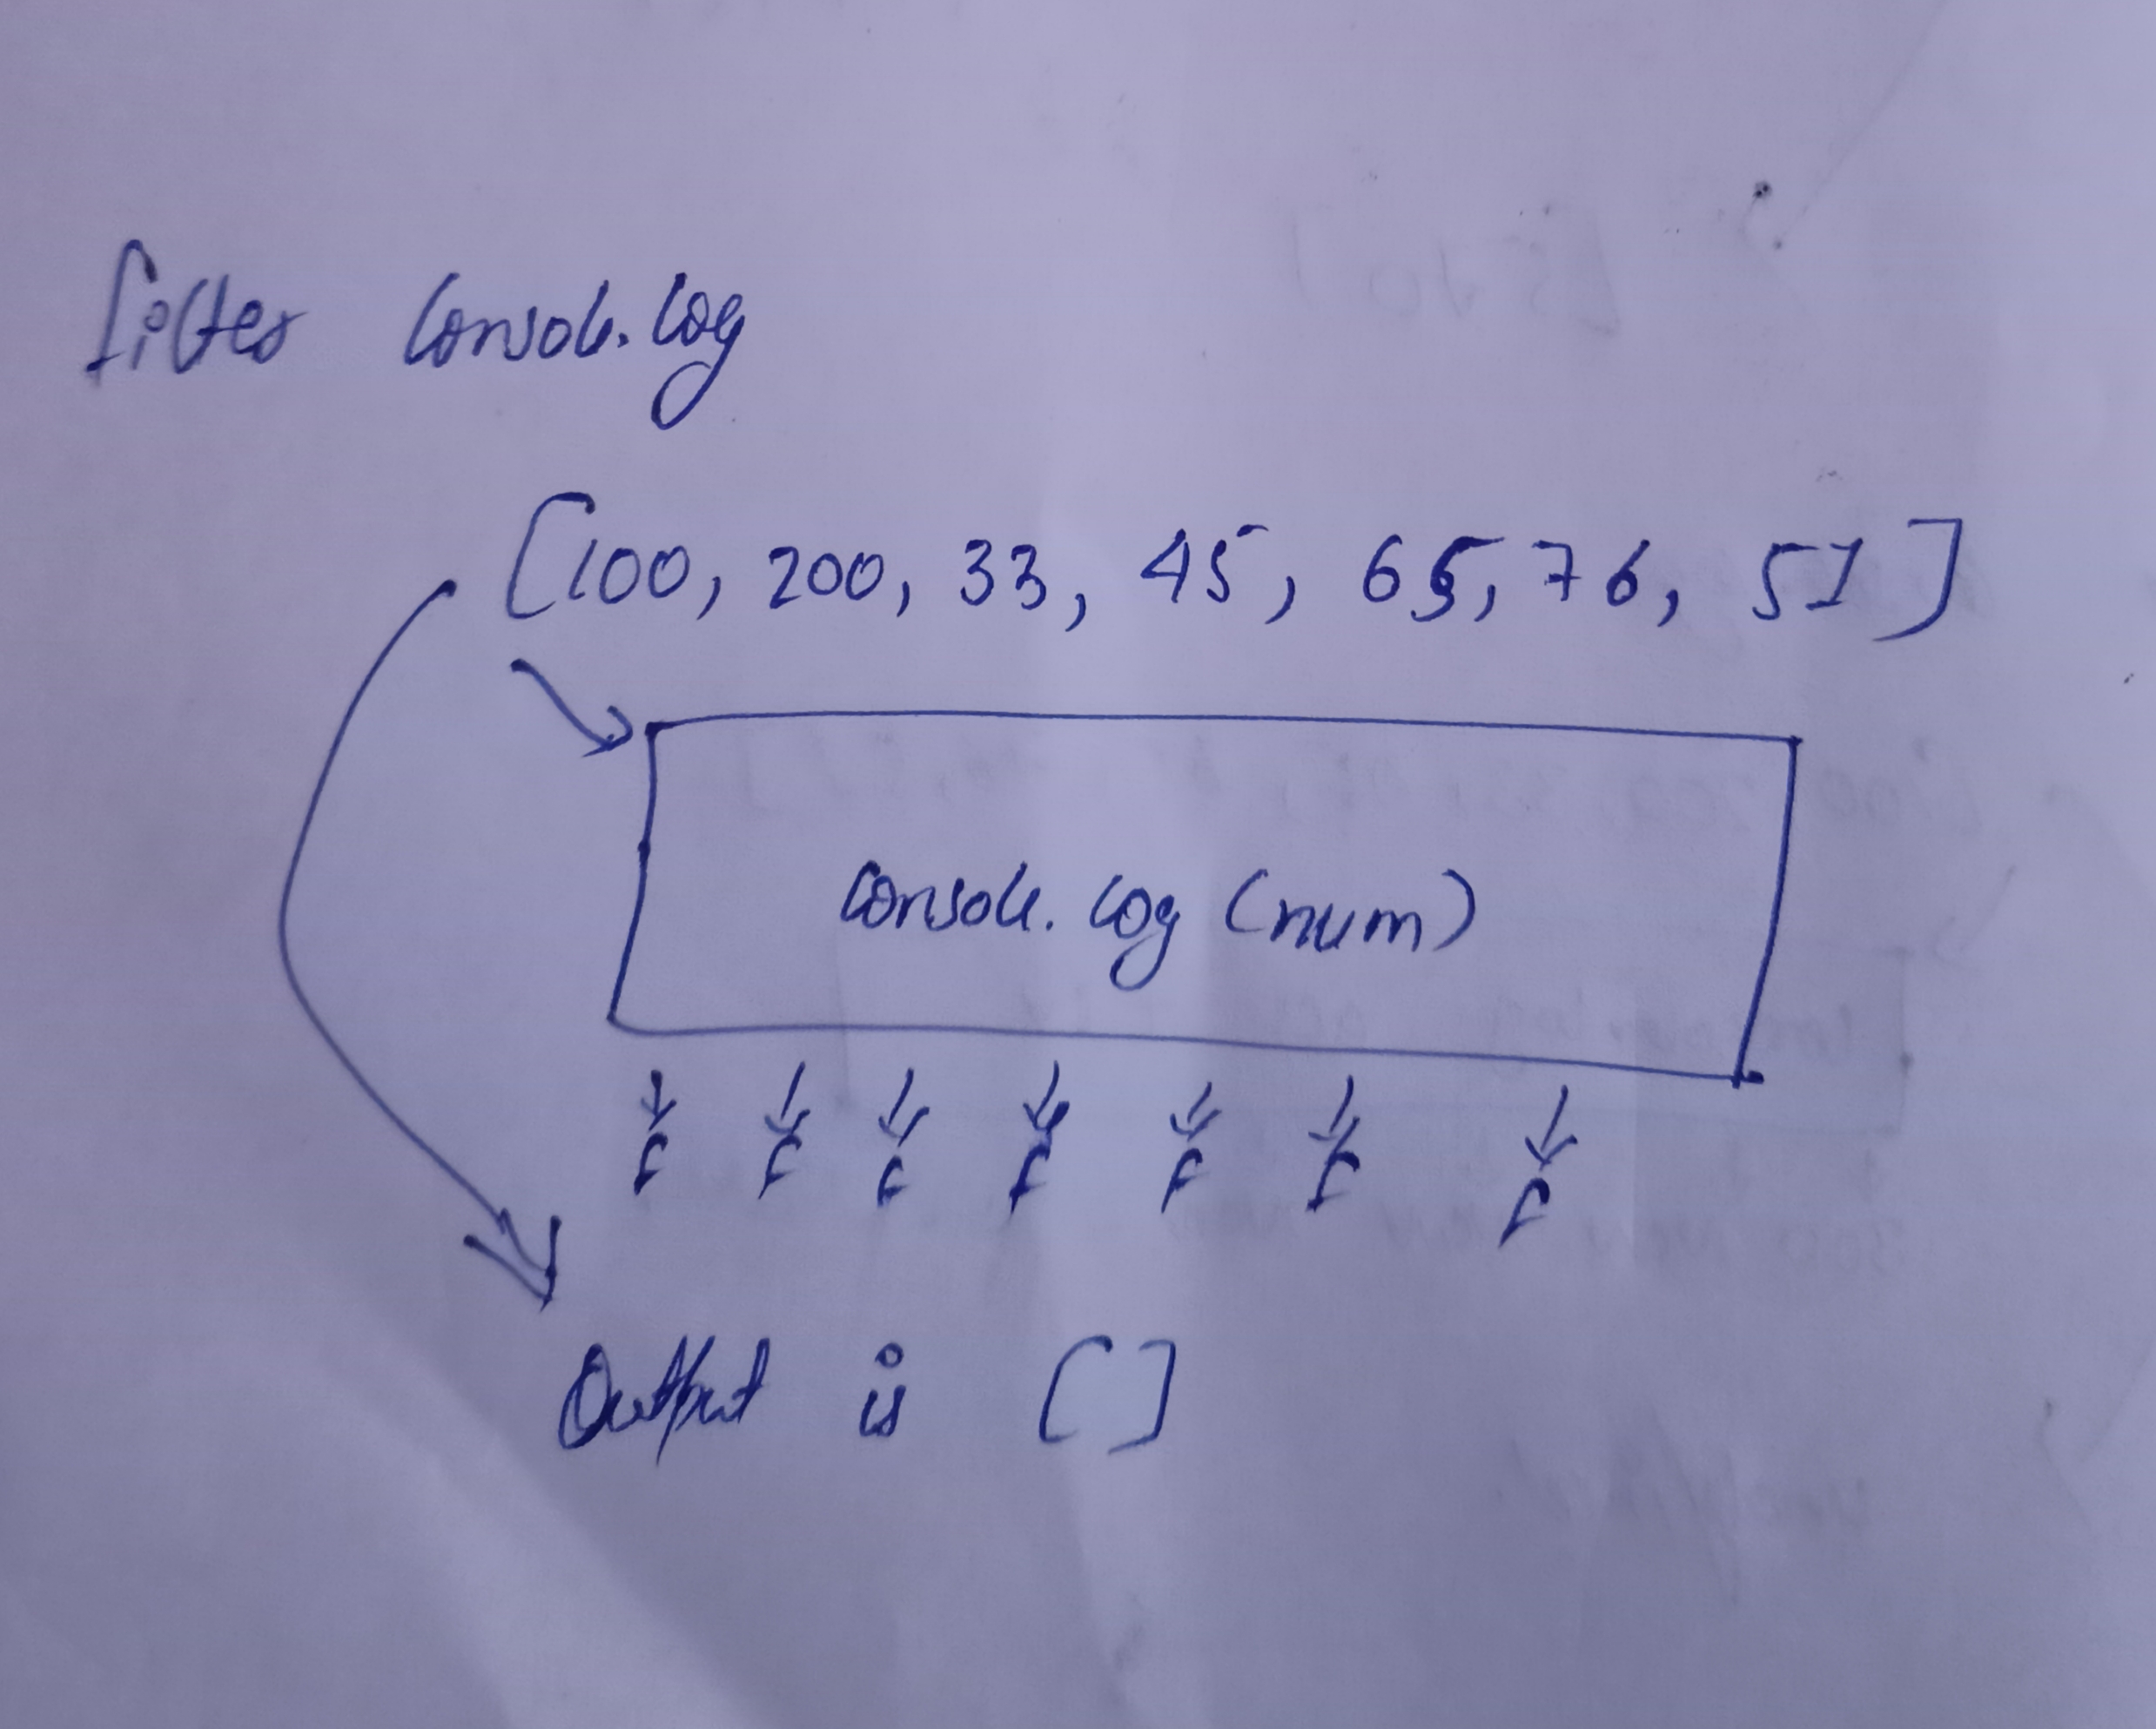 filter console.log
[100, 200, 33, 45, 65, 76, 51]
console.log (num)
F F F F F F F
Output is []